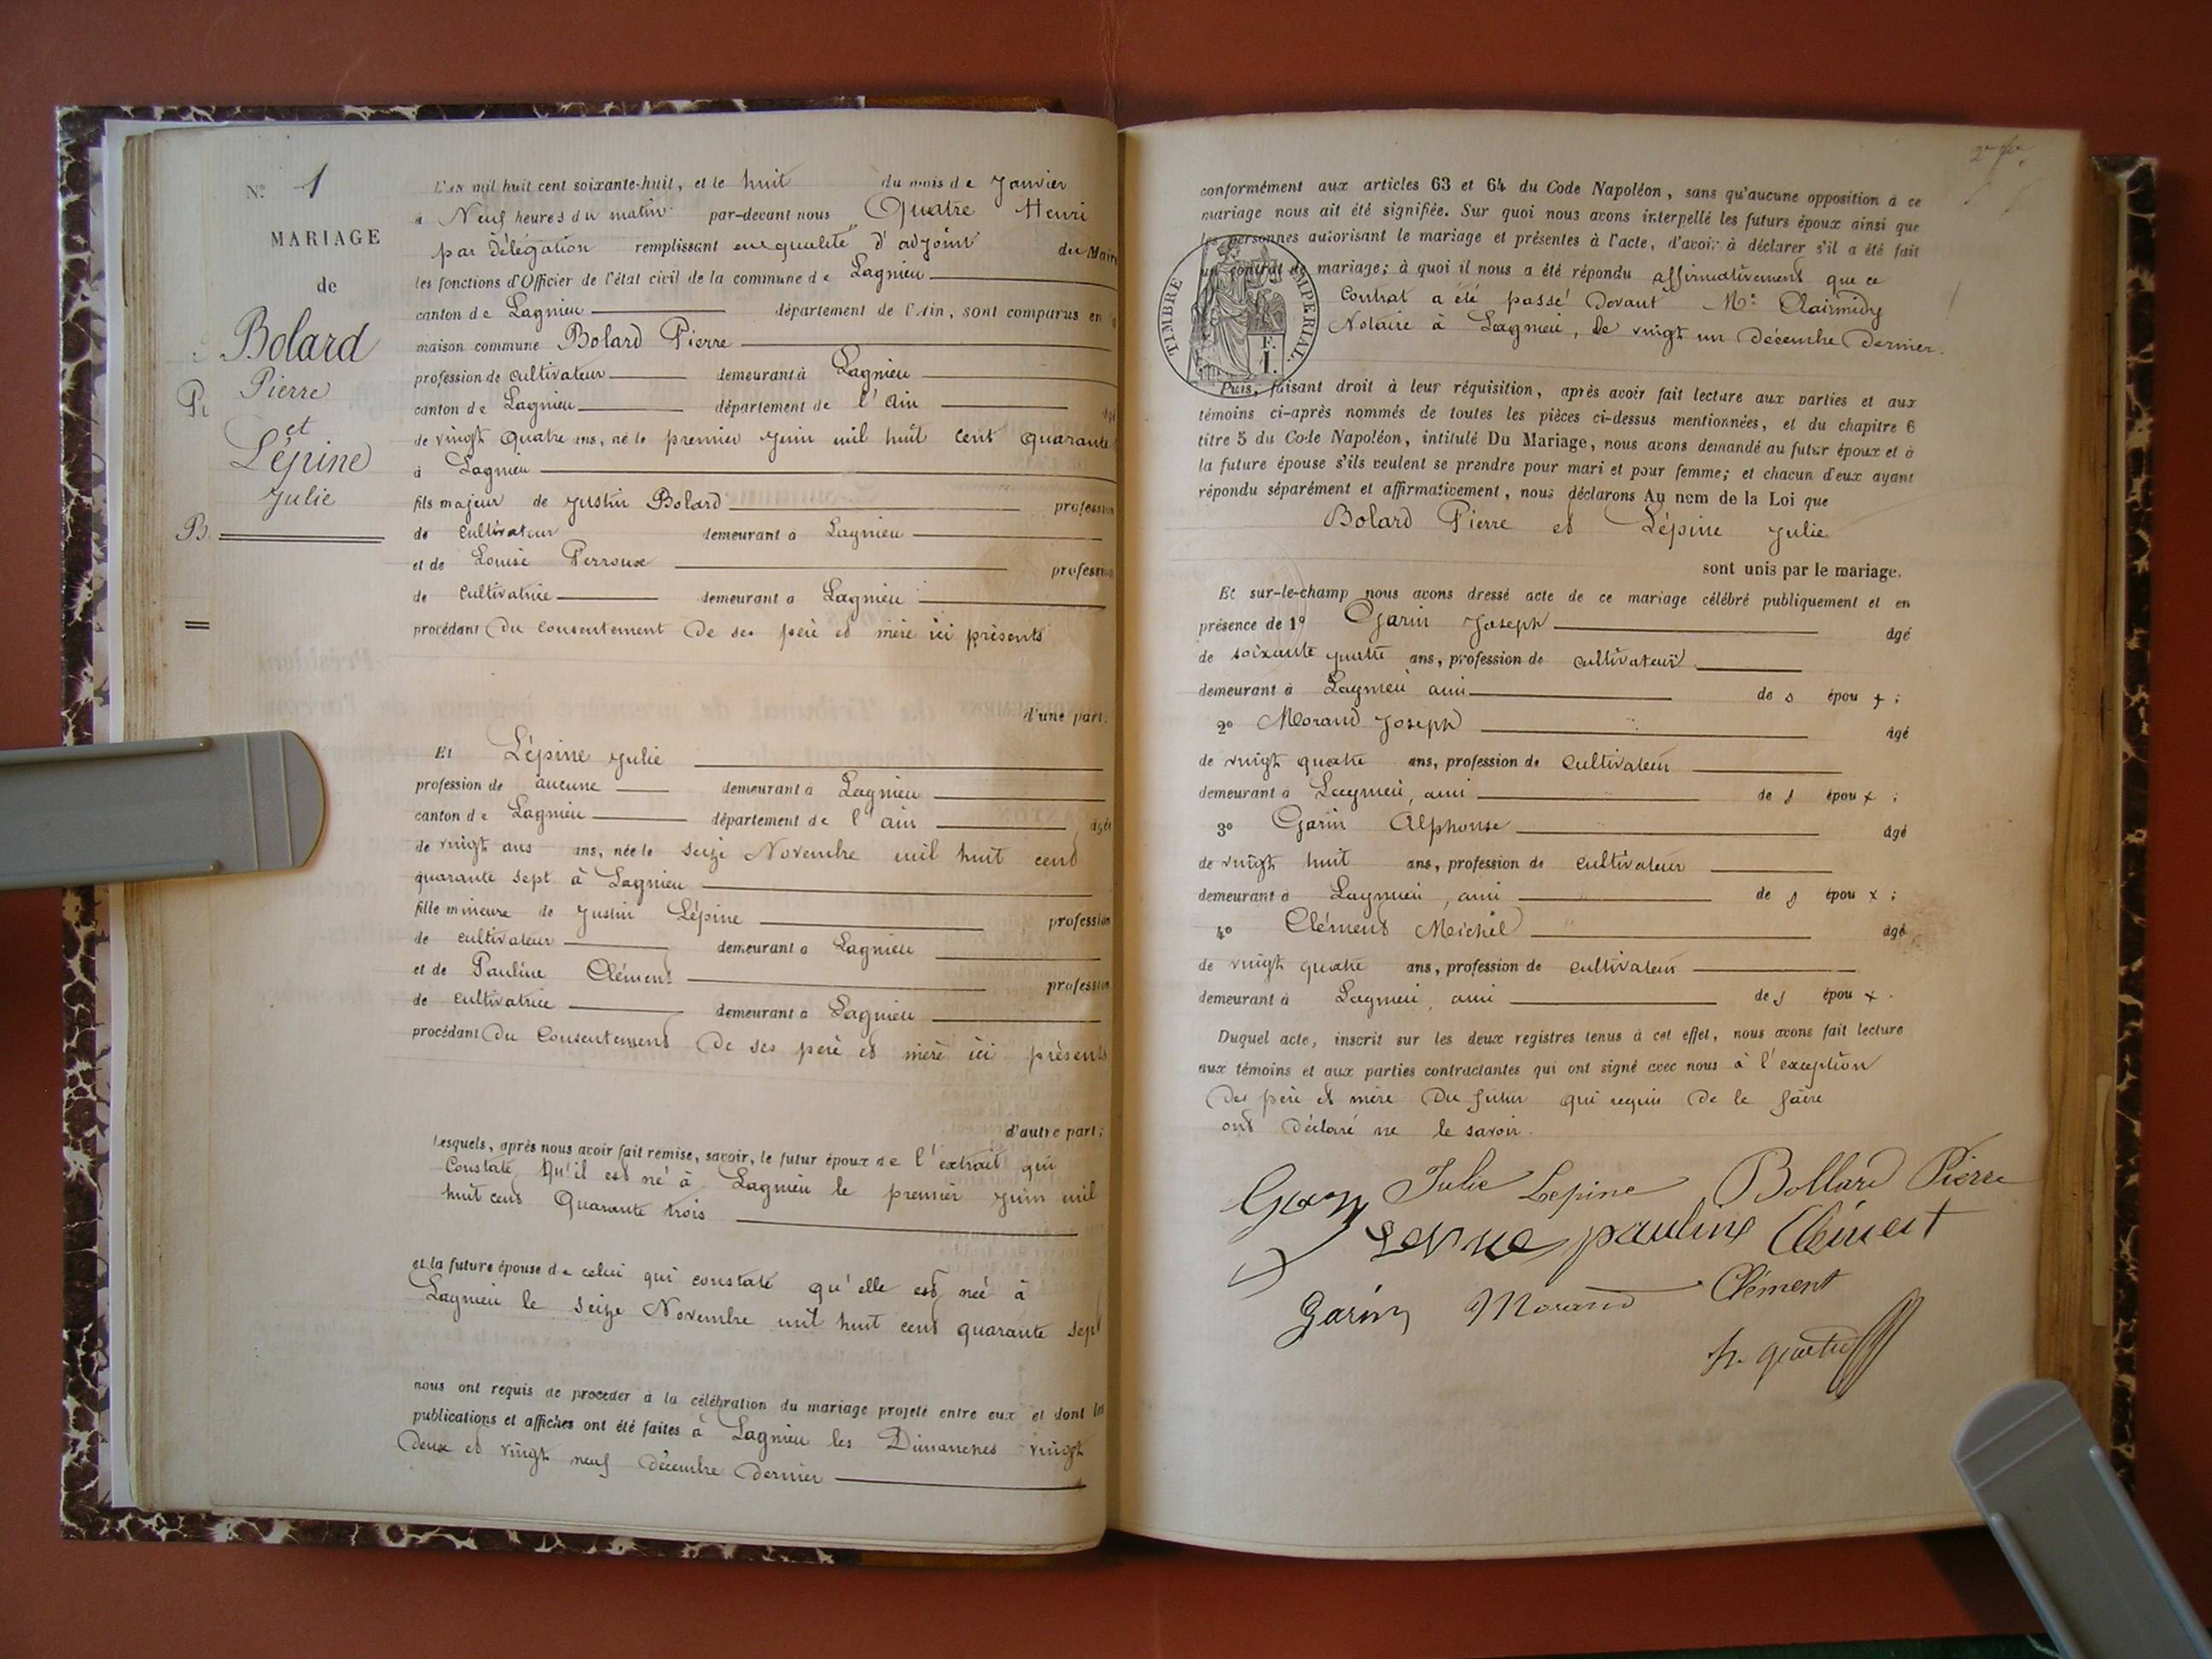 N° 1
MARIAGE
de
Bolard
Pierre
et
Lépine
Julie
L'an mil huit cent soixante-huit, et le huit du mois de Janvier
à Neuf heures du matin par-devant nous Quatre Henri
par délégation remplissant en qualité d'adjoint du Maire
les fonctions d'Officier de l'état civil de la commune de Lagnieu
canton de Lagnieu département de l'Ain, sont comparus en
maison commune Bolard Pierre
profession de cultivateur demeurant à Lagnieu
canton de Lagnieu département de l'ain
de vingt quatre ans, né le premier Juin mil huit cent quarante
à Lagnieu
fils majeur de Justin Bolard profession
de cultivateur demeurant à Lagnieu
et de Louise Perroux profession
de cultivatrice demeurant à Lagnieu
procédant du consentement de ses père et mère ici présents
d'une part.
Et Lépine Julie
profession de aucune demeurant à Lagnieu
canton de Lagnieu département de l'ain âgée
de vingt ans ans, née le seize Novembre mil huit cent
quarante sept à Lagnieu
fille mineure de Justin Lépine profession
de cultivateur demeurant à Lagnieu
et de Pauline Clément profession
de cultivatrice demeurant à Lagnieu
procédant du Consentement de ses père et mère ici présents
d'autre part;
Lesquels, après nous avoir fait remise, savoir, le futur époux de l'extrait qui
Constate qu'il est né à Lagnieu le premier Juin mil
huit cent Quarante trois
et la future épouse de celui qui constate qu'elle est née à
Lagnieu le seize Novembre mil huit cent quarante sept
nous ont requis de procéder à la célébration du mariage projeté entre eux et dont les
publications et affiches ont été faites à Lagnieu les Dimanches vingt
deux et vingt neuf décembre dernier
conformément aux articles 63 et 64 du Code Napoléon, sans qu'aucune opposition à ce
mariage nous ait été signifiée. Sur quoi nous avons interpellé les futurs époux ainsi que
les personnes autorisant le mariage et présentes à l'acte, d'avoir à déclarer s'il a été fait
un contrat de mariage; à quoi il nous a été répondu affirmativement que ce
Contrat a été passé devant Me Clairmidy
Notaire à Lagnieu, le vingt un décembre dernier.
TIMBRE IMPERIAL
F.
1.
Puis, faisant droit à leur réquisition, après avoir fait lecture aux parties et aux
témoins ci-après nommés de toutes les pièces ci-dessus mentionnées, et du chapitre 6
titre 5 du Code Napoléon, intitulé Du Mariage, nous avons demandé au futur époux et à
la future épouse s'ils veulent se prendre pour mari et pour femme; et chacun d'eux ayant
répondu séparément et affirmativement, nous déclarons Au nom de la Loi que
Bolard Pierre et Lépine Julie
sont unis par le mariage.
Et sur-le-champ nous avons dressé acte de ce mariage célébré publiquement et en
présence de 1° Garin Joseph âgé
de soixante quatre ans, profession de cultivateur
demeurant à Lagnieu ami de s épou x ;
2° Morand Joseph âgé
de vingt quatre ans, profession de cultivateur
demeurant à Lagnieu, ami de s épou x ;
3° Garin Alphonse âgé
de vingt huit ans, profession de cultivateur
demeurant à Lagnieu, ami de s épou x ;
4° Clément Meichel âgé
de vingt quatre ans, profession de cultivateur
demeurant à Lagnieu, ami de s épou x .
Duquel acte, inscrit sur les deux registres tenus à cet effet, nous avons fait lecture
aux témoins et aux parties contractantes qui ont signé avec nous à l'exception
des père et mère du futur qui requis de le faire
ont déclaré ne le savoir.
Julie Lepine Bollard Pierre
pauline Clément
Garin Morand Clément
h. quatre